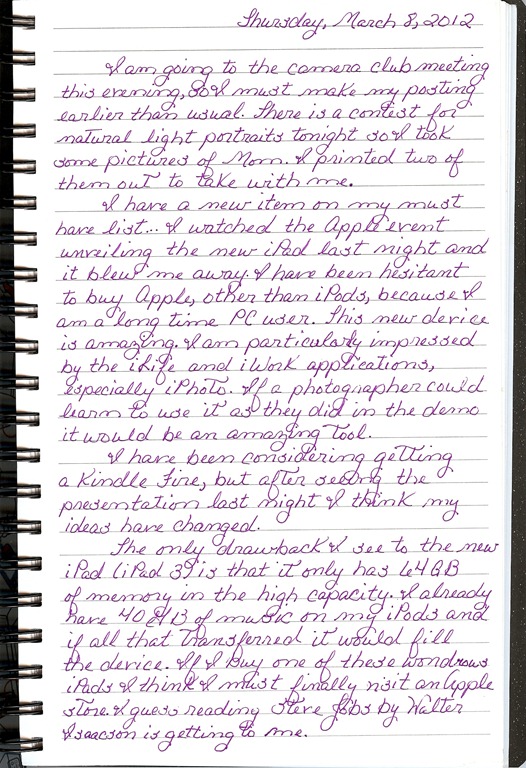 Thursday, March 8, 2012
I am going to the camera club meeting
this evening, so I must make my posting
earlier than usual. There is a contest for
natural light portraits tonight so I took
some pictures of Mom. I printed two of
them out to take with me.
I have a new item on my must
have list... I watched the Apple event
unveiling the new iPad last night and
it blew me away. I have been hesitant
to buy Apple, other than iPods, because I
am a long time PC user. This new device
is amazing. I am particularly impressed
by the iLife and iWork applications,
especially iPhoto. If a photographer could
learn to use it as they did in the demo
it would be an amazing tool.
I have been considering getting
a Kindle Fire, but after seeing the
presentation last night I think my
ideas have changed.
The only drawback I see to the new
iPad (iPad 3?) is that it only has 64GB
of memory in the high capacity. I already
have 40 GB of music on my iPods and
if all that transferred it would fill
the device. If I buy one of these wondrous
iPads I think I must finally visit an Apple
store. I guess reading Steve Jobs by Walter
Isaacson is getting to me.